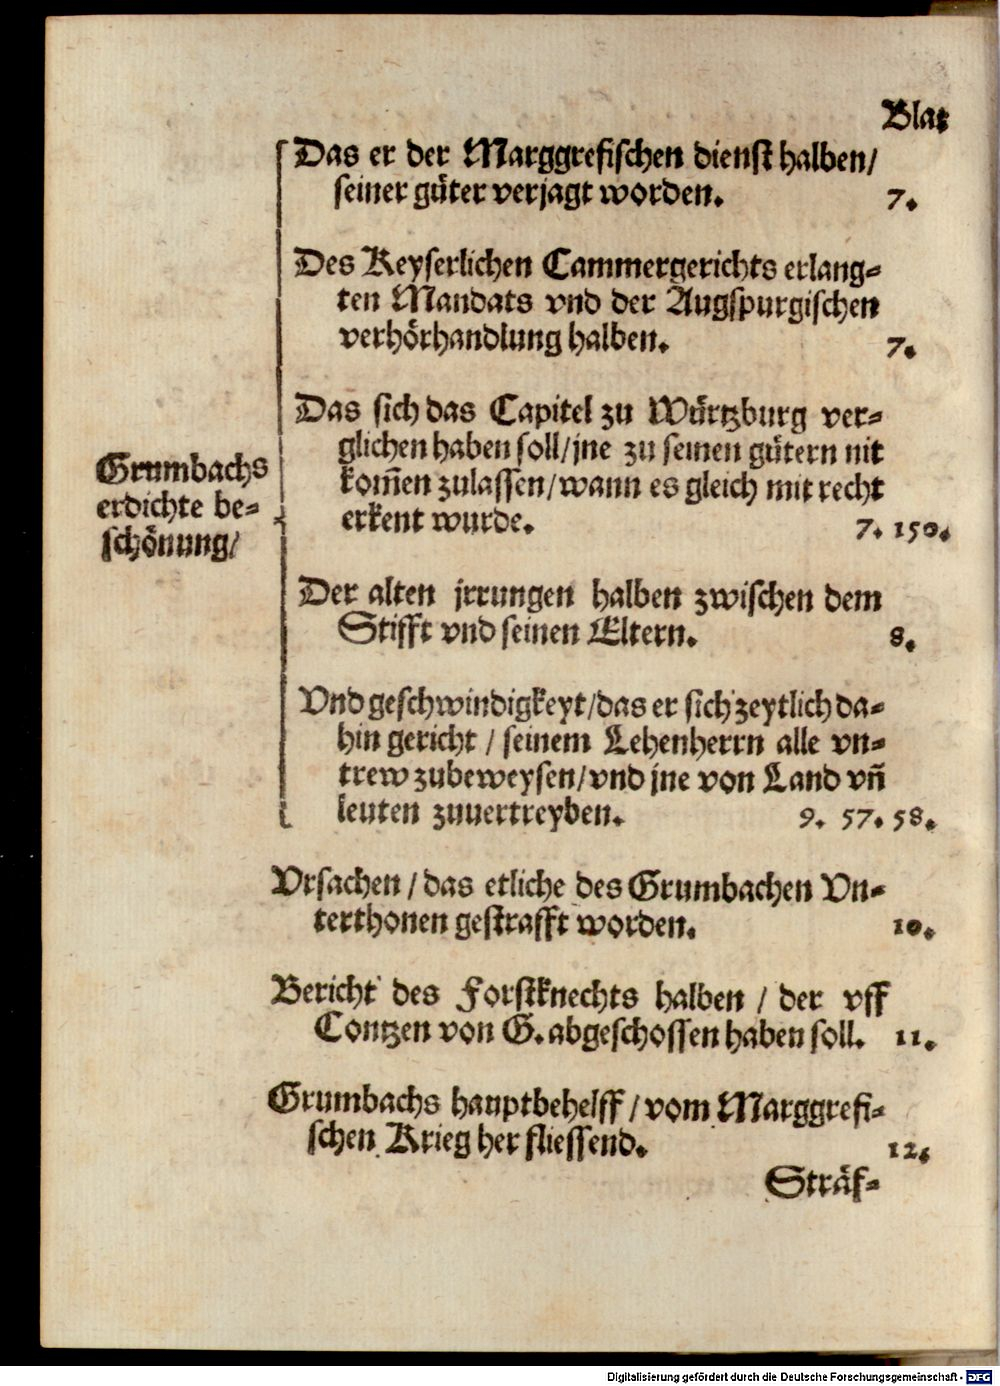 Blat
Das er der Marggrefischen dienst halben/
seiner gůter verjagt worden. 7.
Des Keyserlichen Cammergerichts erlang-
ten Mandats vnd der Augspurgischen
verhörhandlung halben. 7.
Grumbachs
erdichte be-
schönung/
Das sich das Capitel zu Würtzburg ver-
glichen haben soll/jne zu seinen gütern nit
kom̄en zulassen/wann es gleich mit recht
erkent wurde. 7. 150.
Der alten jrrungen halben zwischen dem
Stifft vnd seinen Eltern. 8.
Vnd geschwindigkeyt/das er sich zeytlich da-
hin gericht / seinem Lehenherrn alle vn-
trew zubeweysen/vnd jne von Land vn̄
leuten zuuertreyben. 9. 57. 58.
Vrsachen / das etliche des Grumbachen Vn-
terthonen gestrafft worden. 10.
Bericht des Forstknechts halben / der vff
Contzen von G. abgeschossen haben soll. 11.
Grumbachs hauptbehelff / vom Marggrefi-
schen Krieg her fliessend. 12.
Sträf-
Digitalisierung gefördert durch die Deutsche Forschungsgemeinschaft - DFG